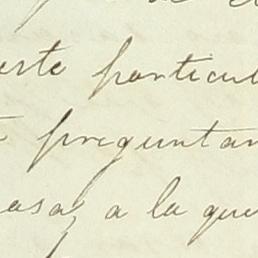 este particul
preguntan
casa, a la que